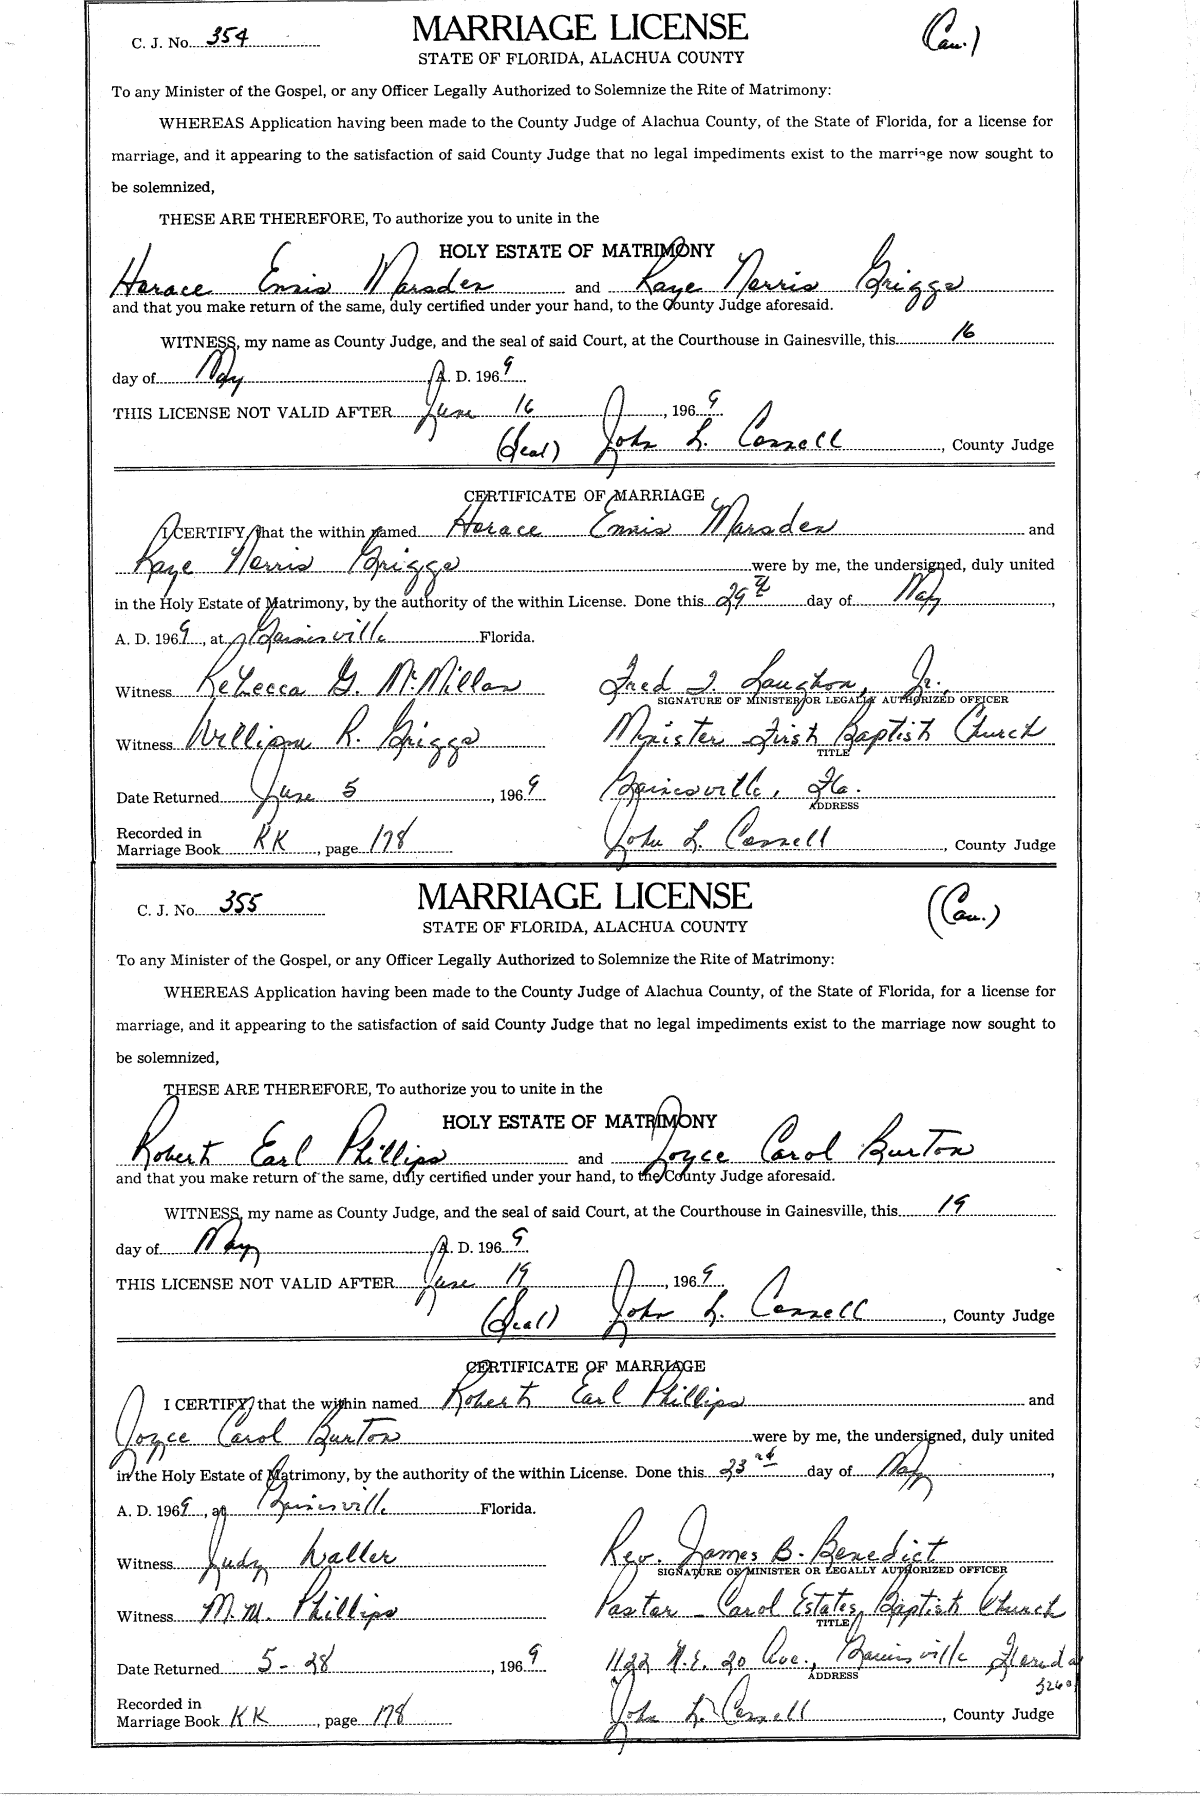 C. J. No. 354
MARRIAGE LICENSE
(Cau.)
STATE OF FLORIDA, ALACHUA COUNTY
To any Minister of the Gospel, or any Officer Legally Authorized to Solemnize the Rite of Matrimony:
WHEREAS Application having been made to the County Judge of Alachua County, of the State of Florida, for a license for
marriage, and it appearing to the satisfaction of said County Judge that no legal impediments exist to the marriage now sought to
be solemnized,
THESE ARE THEREFORE, To authorize you to unite in the
HOLY ESTATE OF MATRIMONY
Horace Ennis Marsden and Kaye Norris Griggs
and that you make return of the same, duly certified under your hand, to the County Judge aforesaid.
WITNESS, my name as County Judge, and the seal of said Court, at the Courthouse in Gainesville, this 16
day of May A. D. 1969
THIS LICENSE NOT VALID AFTER June 16, 1969
(Seal) John L. Connell, County Judge
CERTIFICATE OF MARRIAGE
I CERTIFY that the within named Horace Ennis Marsden and
Kaye Norris Griggs were by me, the undersigned, duly united
in the Holy Estate of Matrimony, by the authority of the within License. Done this 29th day of May,
A. D. 1969, at Gainesville Florida.
Witness Rebecca G. McMillan Fred T. Laughon, Jr.
SIGNATURE OF MINISTER OR LEGALLY AUTHORIZED OFFICER
Witness William R. Griggs Minister First Baptist Church
TITLE
Date Returned June 5, 1969 Gainesville, Fla.
ADDRESS
Recorded in
Marriage Book KK, page 178 John L. Connell, County Judge
C. J. No. 355
MARRIAGE LICENSE
(Cau.)
STATE OF FLORIDA, ALACHUA COUNTY
To any Minister of the Gospel, or any Officer Legally Authorized to Solemnize the Rite of Matrimony:
WHEREAS Application having been made to the County Judge of Alachua County, of the State of Florida, for a license for
marriage, and it appearing to the satisfaction of said County Judge that no legal impediments exist to the marriage now sought to
be solemnized,
THESE ARE THEREFORE, To authorize you to unite in the
HOLY ESTATE OF MATRIMONY
Robert Earl Phillips and Joyce Carol Burton
and that you make return of the same, duly certified under your hand, to the County Judge aforesaid.
WITNESS, my name as County Judge, and the seal of said Court, at the Courthouse in Gainesville, this 19
day of May A. D. 1969
THIS LICENSE NOT VALID AFTER June 19, 1969
(Seal) John L. Connell, County Judge
CERTIFICATE OF MARRIAGE
I CERTIFY that the within named Robert Earl Phillips and
Joyce Carol Burton were by me, the undersigned, duly united
in the Holy Estate of Matrimony, by the authority of the within License. Done this 23rd day of May,
A. D. 1969, at Gainesville Florida.
Witness Judy Waller Rev. James B. Benedict
SIGNATURE OF MINISTER OR LEGALLY AUTHORIZED OFFICER
Witness M. M. Phillips Pastor - Carol Estates Baptist Church
TITLE
Date Returned 5-28, 1969 1122 N.E. 20 Ave., Gainesville Florida
ADDRESS
32601
Recorded in
Marriage Book KK, page 178 John L. Connell, County Judge